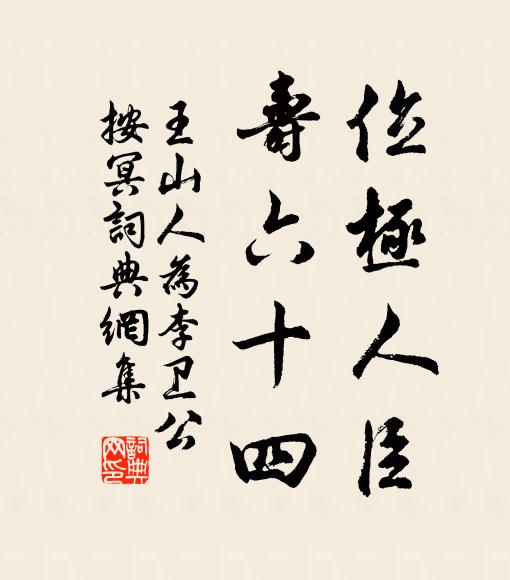 位極人臣
壽六十四
王山人為李卫公
按冥詞典網集
詞典网印